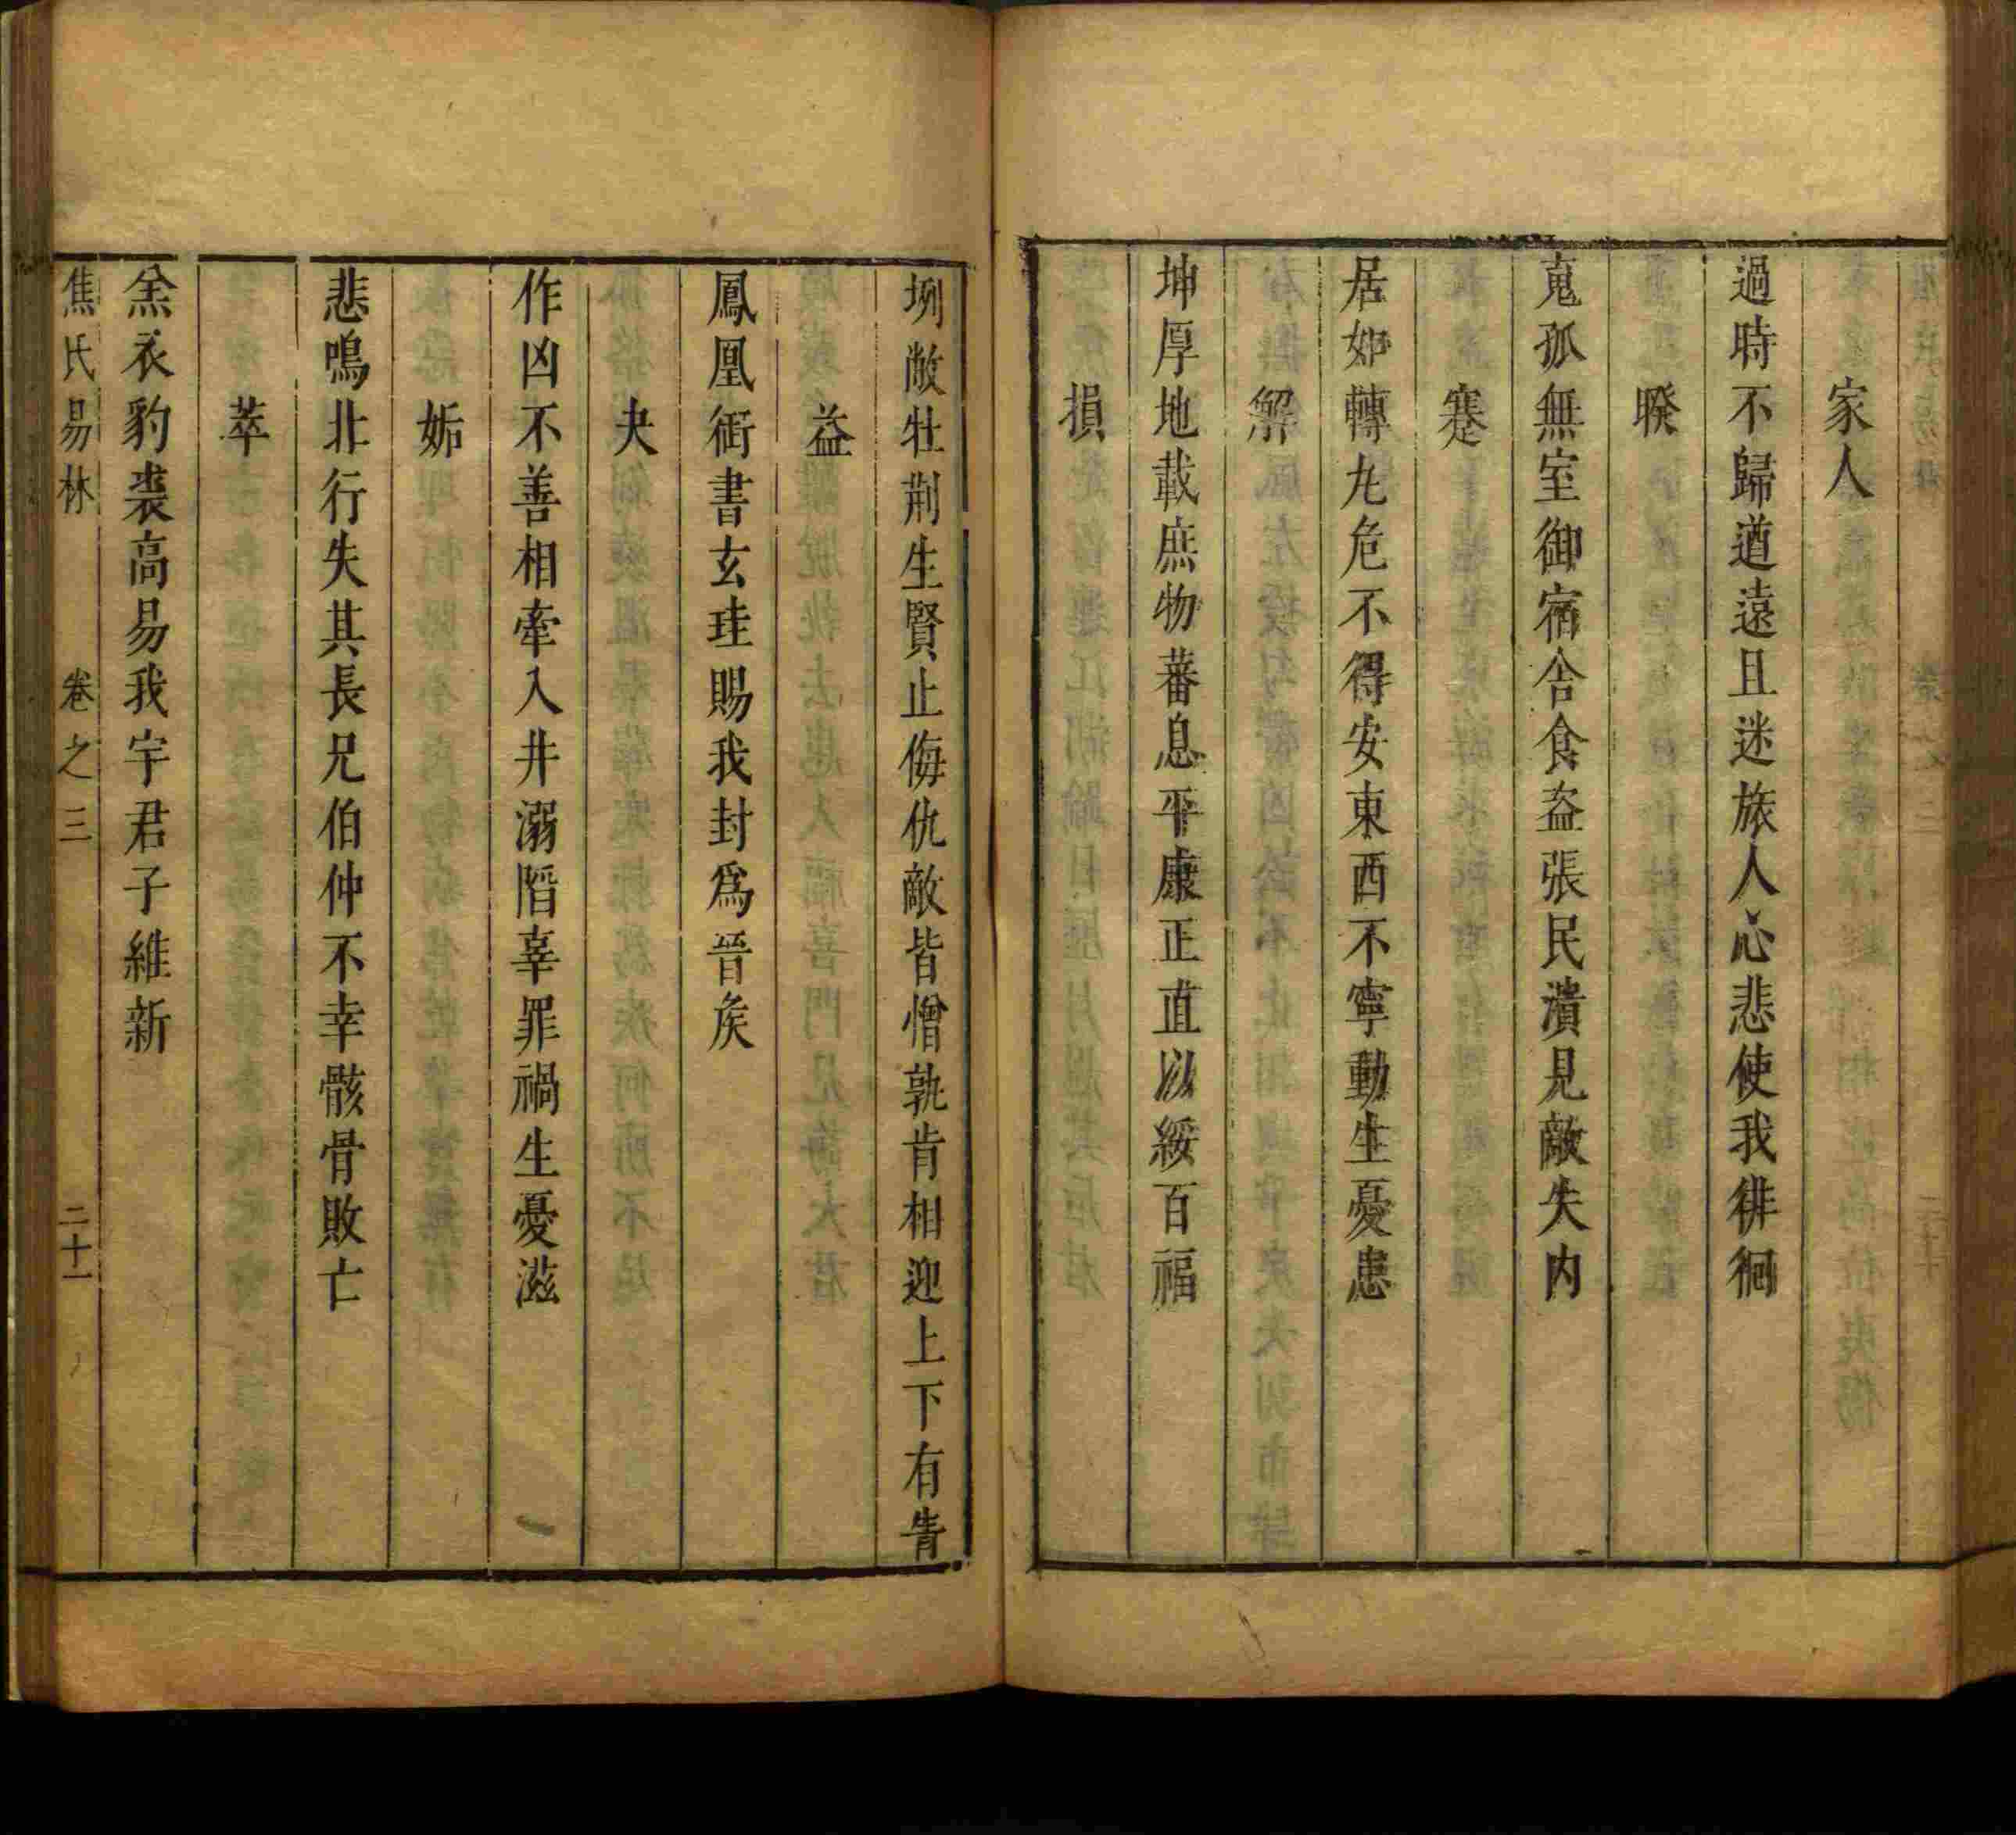 家人
過時不歸遒遠且迷旅人心悲使我徘徊
睽
𡯁孤無室御宿舍食盜張民潰見敵失內
蹇
居如轉丸危不得安東西不寧動生憂患
解
坤厚地載庶物蕃息平康正直以綏百福
損
㘺敝牡荆生賢止侮仇敵皆憎孰肯相迎上下有眚
益
鳳凰銜書玄珪賜我封爲晉矦
夬
作凶不善相牽入井溺䧟辜罪禍生憂滋
姤
悲鳴北行失其長兄伯仲不幸骸骨敗亡
萃
羔衣豹裘高易我宇君子維新
焦氏易林 卷之三 二十一